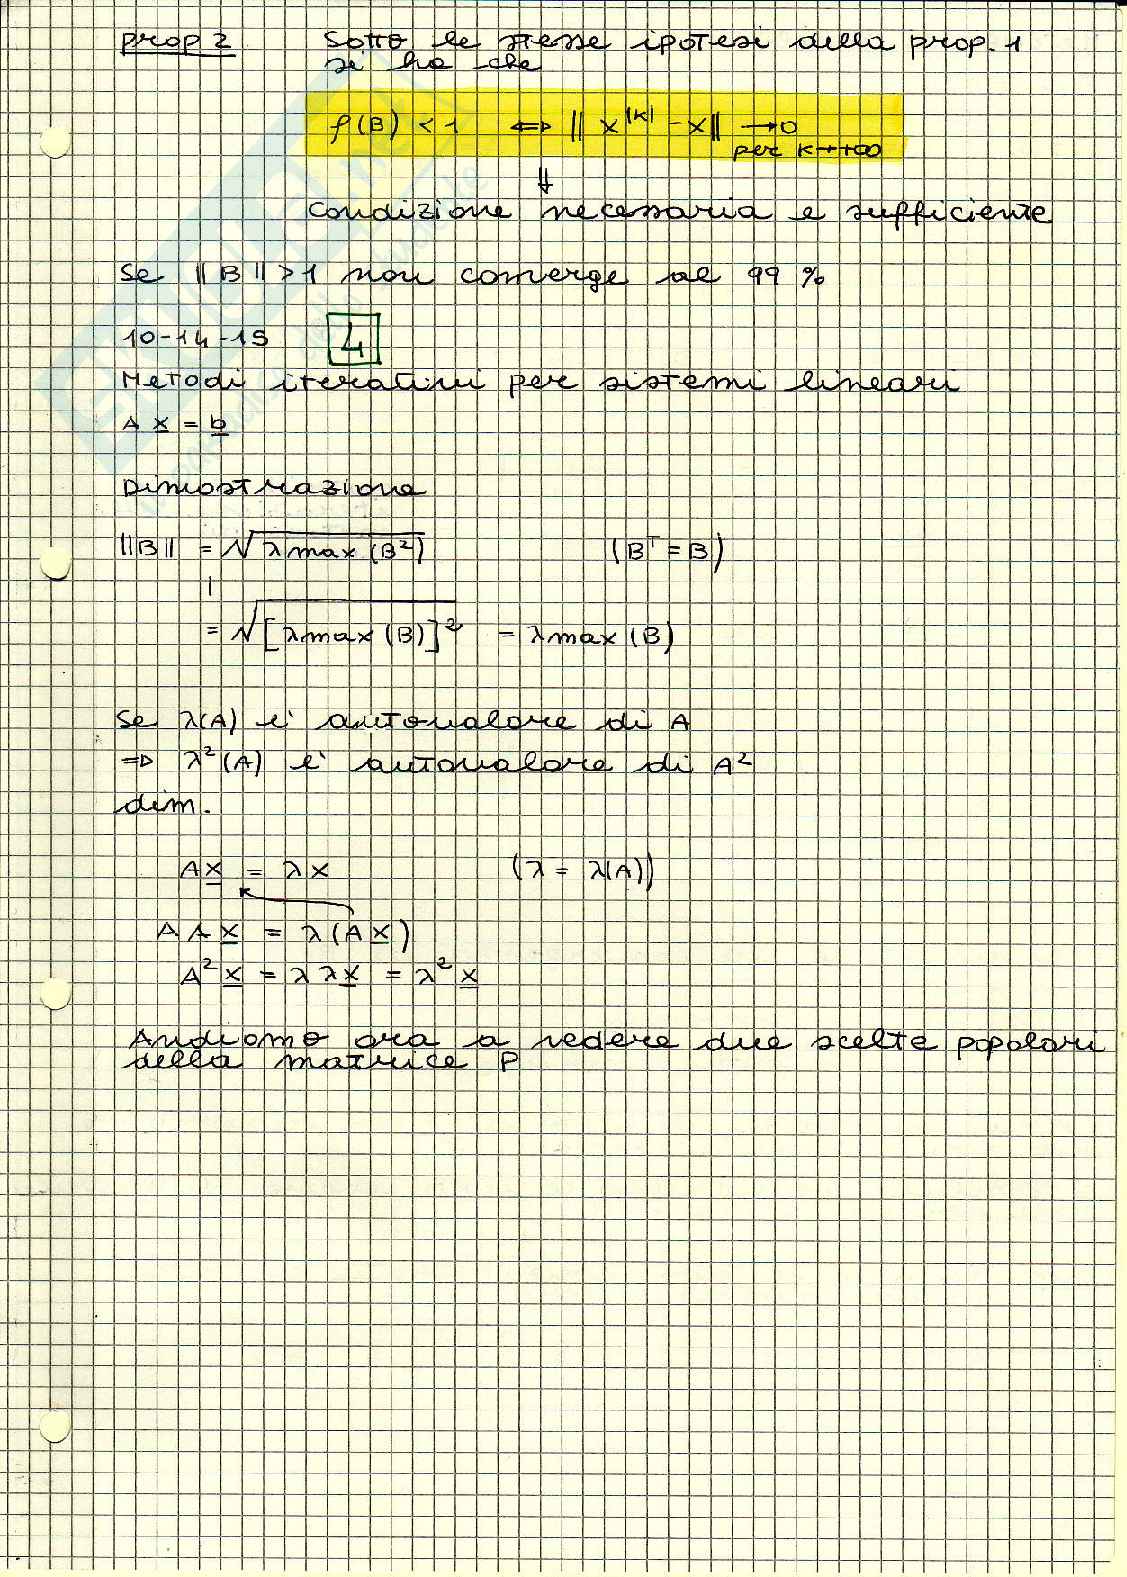 prop 2 Sotto le stesse ipotesi della prop. 1
si ha che
ρ(B) < 1 ⇔ || x^(k) - x || → 0
per k→+∞
⇓
condizione necessaria e sufficiente
Se ||B|| > 1 non converge al 99 %
10-14-15 4
Metodi iterativi per sistemi lineari
A x = b
Dimostrazione
||B|| = √λmax (B²) (Bᵀ = B)
= √[λmax (B)]² = λmax (B)
Se λ(A) e' autovalore di A
⇒ λ²(A) e' autovalore di A²
dim.
Ax = λx (λ = λ(A))
A A x = λ(A x)
A² x = λ λ x = λ² x
Andiamo ora a vedere due scelte popolari
della matrice P